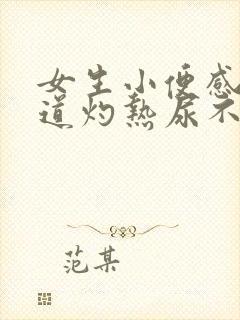 女生小便感
道灼热尿不
范某